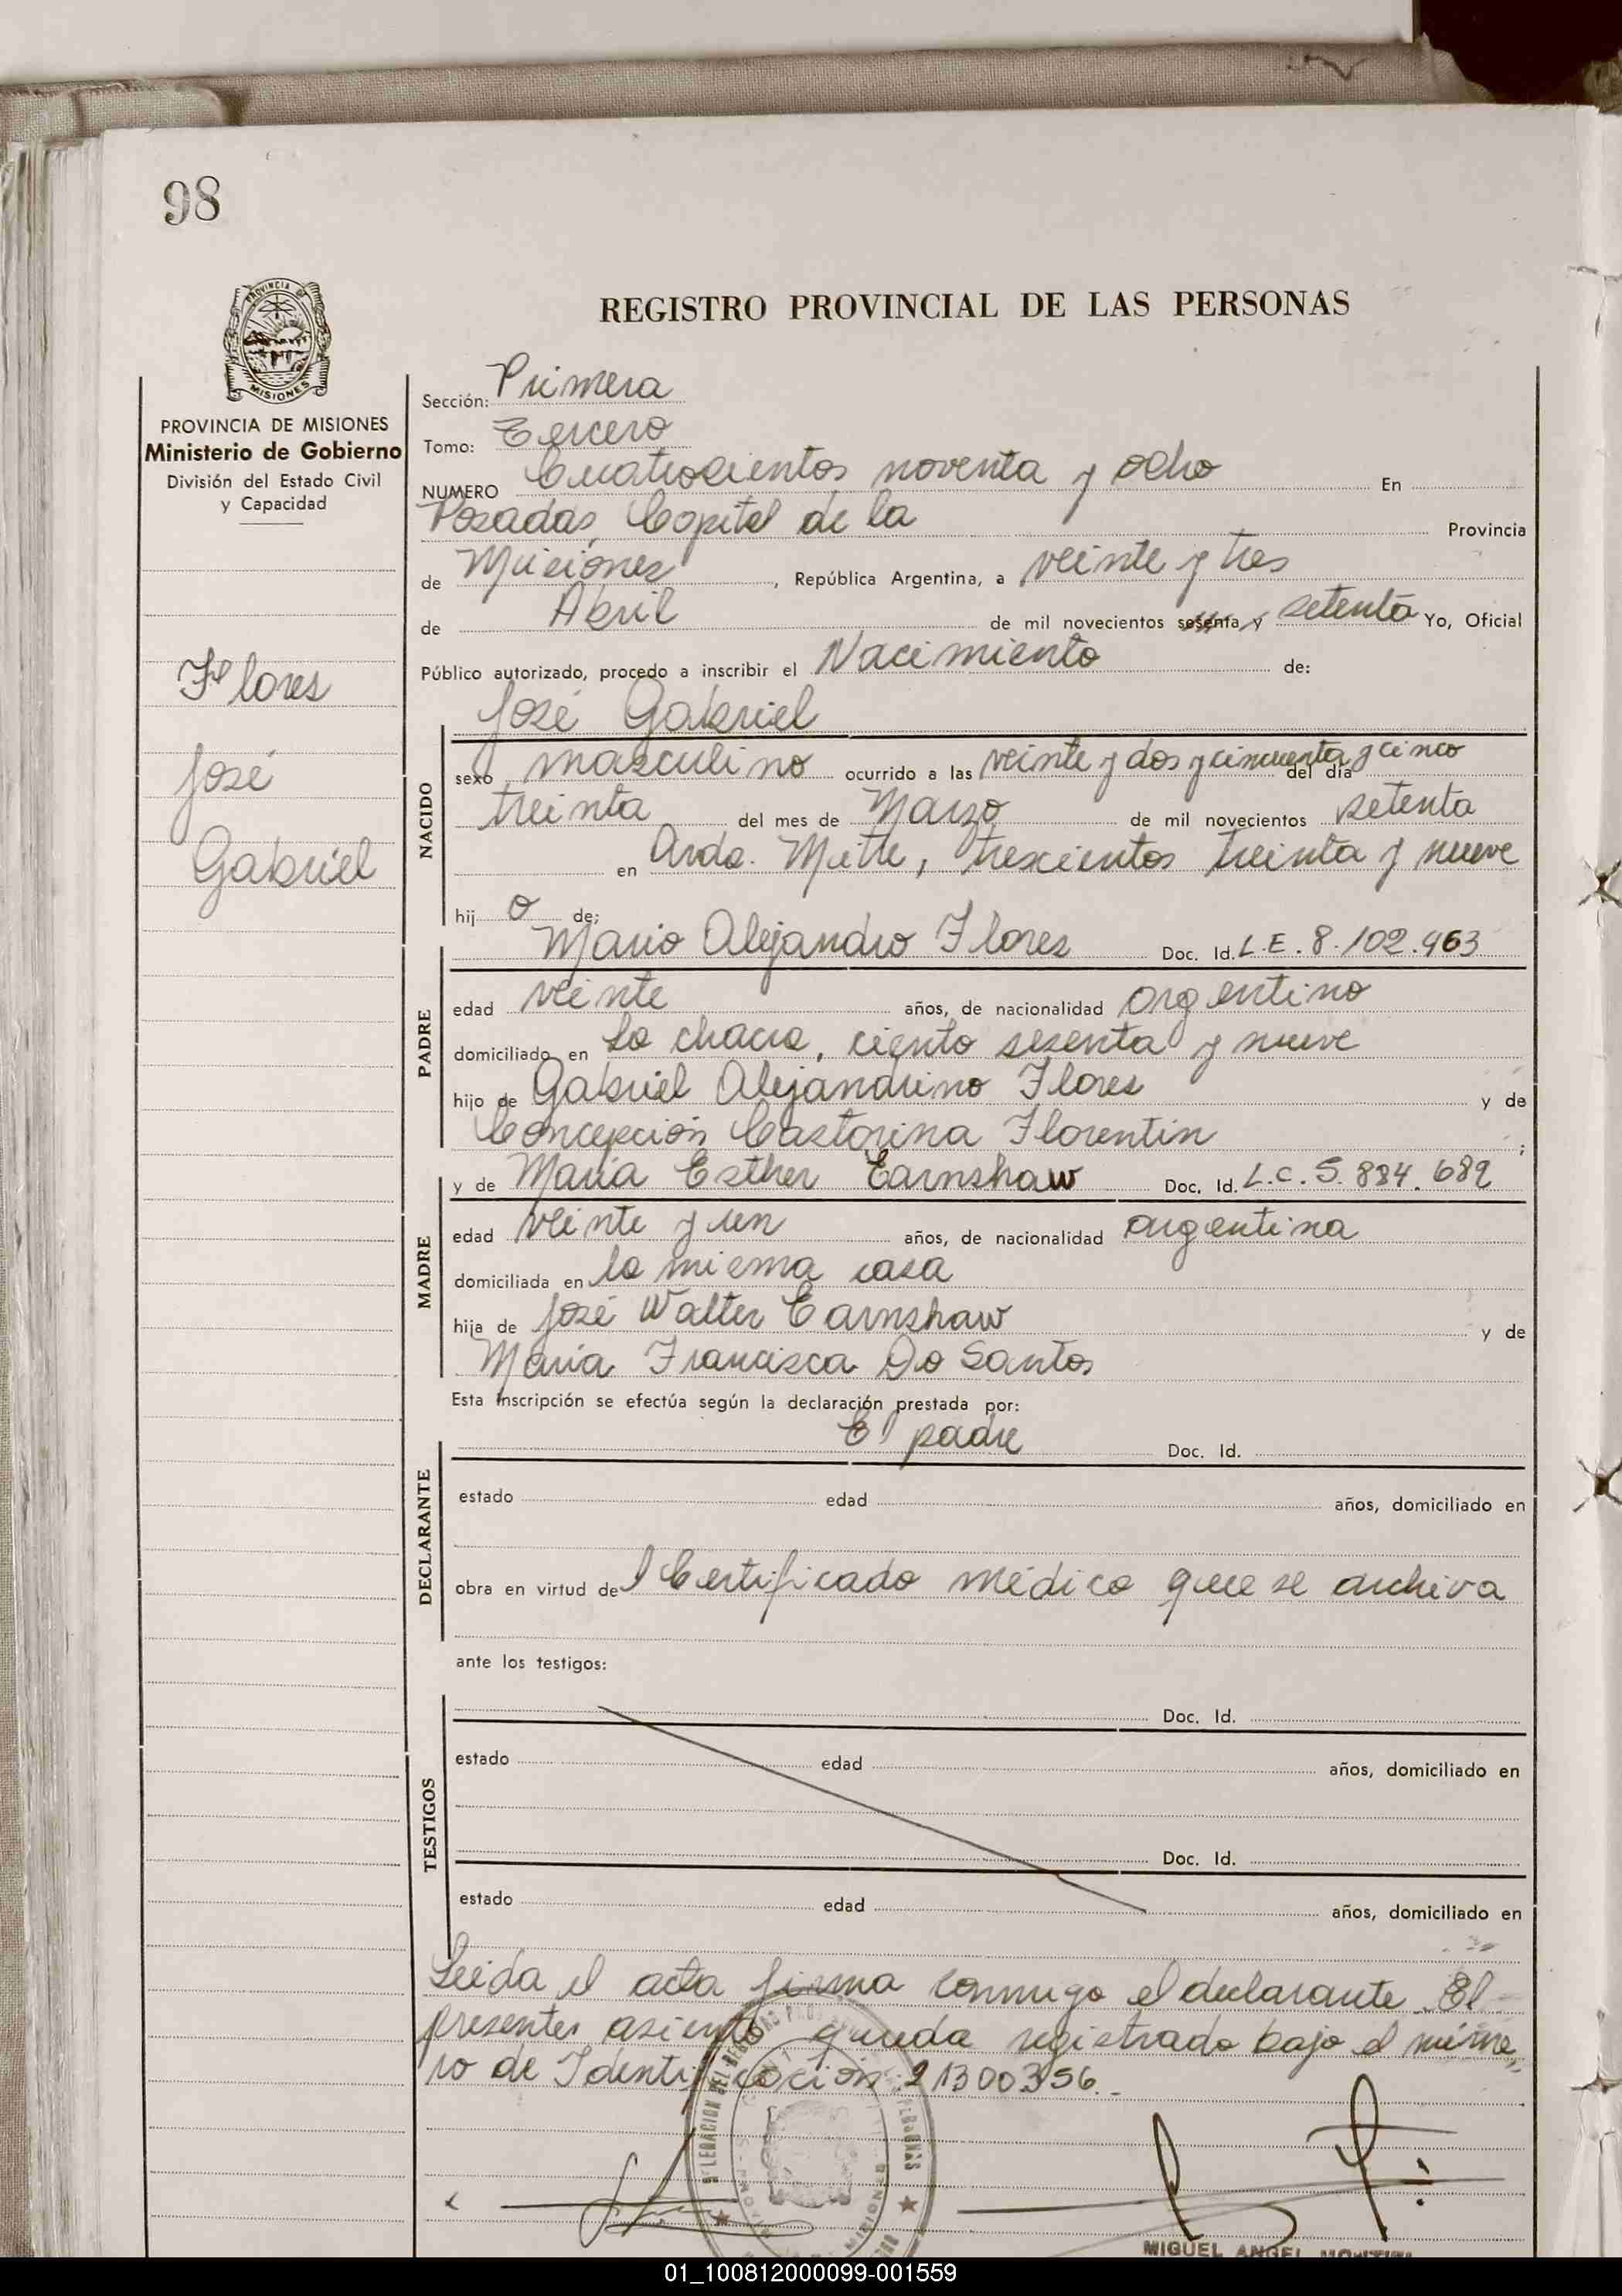 98
REGISTRO PROVINCIAL DE LAS PERSONAS
PROVINCIA DE MISIONES
Ministerio de Gobierno
División del Estado Civil
y Capacidad
Flores
José
Gabriel
Sección: Primera
Tomo: Tercero
NUMERO Cuatrocientos noventa y ocho En
Posadas, Capital de la Provincia
de Misiones, República Argentina, a veinte y tres
de Abril de mil novecientos sesenta y setenta Yo, Oficial
Público autorizado, procedo a inscribir el Nacimiento de:
José Gabriel
NACIDO
sexo masculino ocurrido a las veinte y dos y cincuenta y cinco del día
treinta del mes de Marzo de mil novecientos setenta
en Avda. Mitre, trescientos treinta y nueve
hij o de:
Mario Alejandro Flores Doc. Id. L.E. 8.102.963
PADRE
edad veinte años, de nacionalidad argentino
domiciliado en La chacra, ciento sesenta y nueve
hijo de Gabriel Alejandrino Flores y de
Concepción Castorina Florentin ;
y de María Esther Earnshaw Doc. Id. L.C. 5.884.682
MADRE
edad veinte y un años, de nacionalidad argentina
domiciliada en la misma casa
hija de José Walter Earnshaw y de
María Francisca Do Santos
Esta inscripción se efectúa según la declaración prestada por:
El padre Doc. Id.
DECLARANTE
estado edad años, domiciliado en
obra en virtud del Certificado médico que se archiva
ante los testigos:
Doc. Id.
TESTIGOS
estado edad años, domiciliado en
Doc. Id.
estado edad años, domiciliado en
Leida el acta firma conmigo el declarante. El
presente asiento queda registrado bajo el núme-
ro de Identificación: 21300356.-
MIGUEL ANGEL
01_100812000099-001559